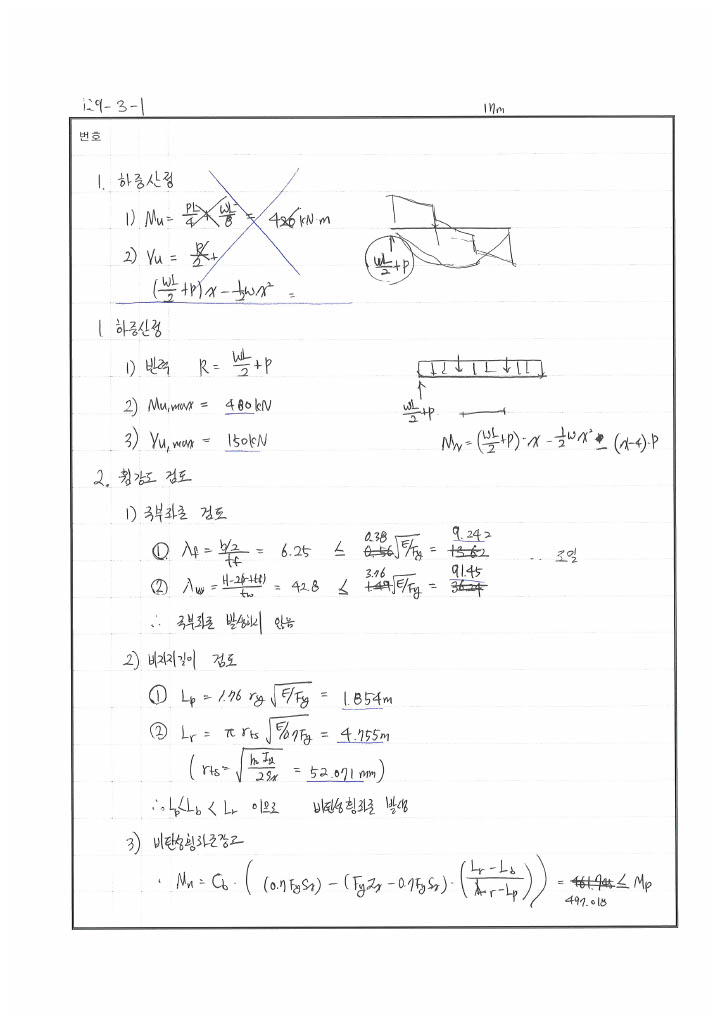 129-3-1
번호
1. 하중산정
1) Mu = PL/4 + WL²/8 = 426 kN·m
2) Vu = P/2 +
(WL/2 + P) x - 1/2 w x² =
WL/2 + P
1 하중산정
1) 반력 R = WL/2 + P
WL/2 + P
2) Mu,max = 480kN
3) Vu,max = 150kN
Mx = (WL/2 + P)·x - 1/2 w x² - (x-4)·P
2. 휨강도 검토
1) 국부좌굴 검토
① λf = b/2 / tf = 6.25 ≤ 0.38 0.56 √E/Fy = 9.242 13.62
② λw = H-2(r+tf) / tw = 42.8 ≤ 3.76 1.49 √E/Fy = 91.45 36.24
∴ 국부좌굴 발생하지 않음
2) 비지지길이 검토
① Lp = 1.76 ry √E/Fy = 1.854m
② Lr = π rts √E/0.7Fy = 4.755m
( rts = √ho Iy / 2Sx = 52.071 mm )
∴ Lp < Lb < Lr 이므로 비탄성횡좌굴 발생
3) 비탄성횡좌굴강도
· Mn = Cb · ( (0.7FySx) - (FyZx - 0.7FySx) · ( Lr - Lb / Lr - Lp ) ) = 461.745 ≤ Mp
497.018